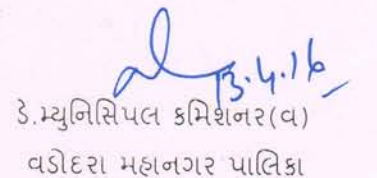 13.4.16
ડે.મ્યુનિસિપલ કમિશનર(વ)
વડોદરા મહાનગર પાલિકા